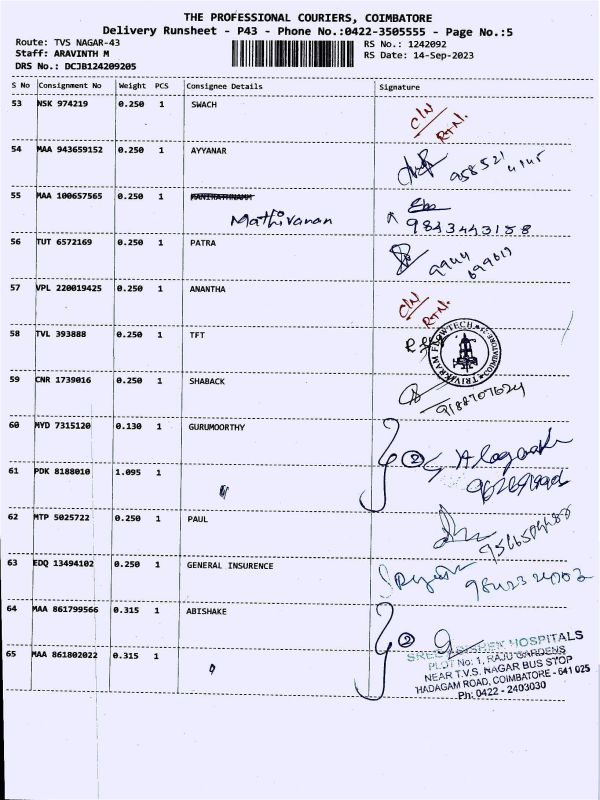 THE PROFESSIONAL COURIERS, COIMBATORE
Delivery Runsheet - P43 - Phone No.:0422-3505555 - Page No.:5
Route: TVS NAGAR-43
RS No.: 1242092
Staff: ARAVINTH M
RS Date: 14-Sep-2023
DRS No.: DCJB124209205
S No Consignment No Weight PCS Consignee Details Signature
53 NSK 974219 0.250 1 SWACH
C/N
RTN.
54 MAA 943659152 0.250 1 AYYANAR
958521 4145
55 MAA 100657565 0.250 1 MANIRATHNAMM
Mathivanan
9843443158
56 TUT 6572169 0.250 1 PATRA
9944
699619
57 VPL 220019425 0.250 1 ANANTHA
C/N
RTN.
58 TVL 393888 0.250 1 TFT
TRIVIKRAM FLOWTECH
COIMBATORE
59 CNR 1739016 0.250 1 SHABACK
9188707624
60 MYD 7315120 0.130 1 GURUMOORTHY
2
61 PDK 8188010 1.095 1
62 MTP 5025722 0.250 1 PAUL
63 EDQ 13494102 0.250 1 GENERAL INSURENCE
64 MAA 861799566 0.315 1 ABISHAKE
2
HOSPITALS
65 MAA 861802022 0.315 1
PLOT No: 1, RAJU GARDENS
NEAR T.V.S. NAGAR BUS STOP
HADAGAM ROAD, COIMBATORE - 641 025
Ph: 0422 - 2403030